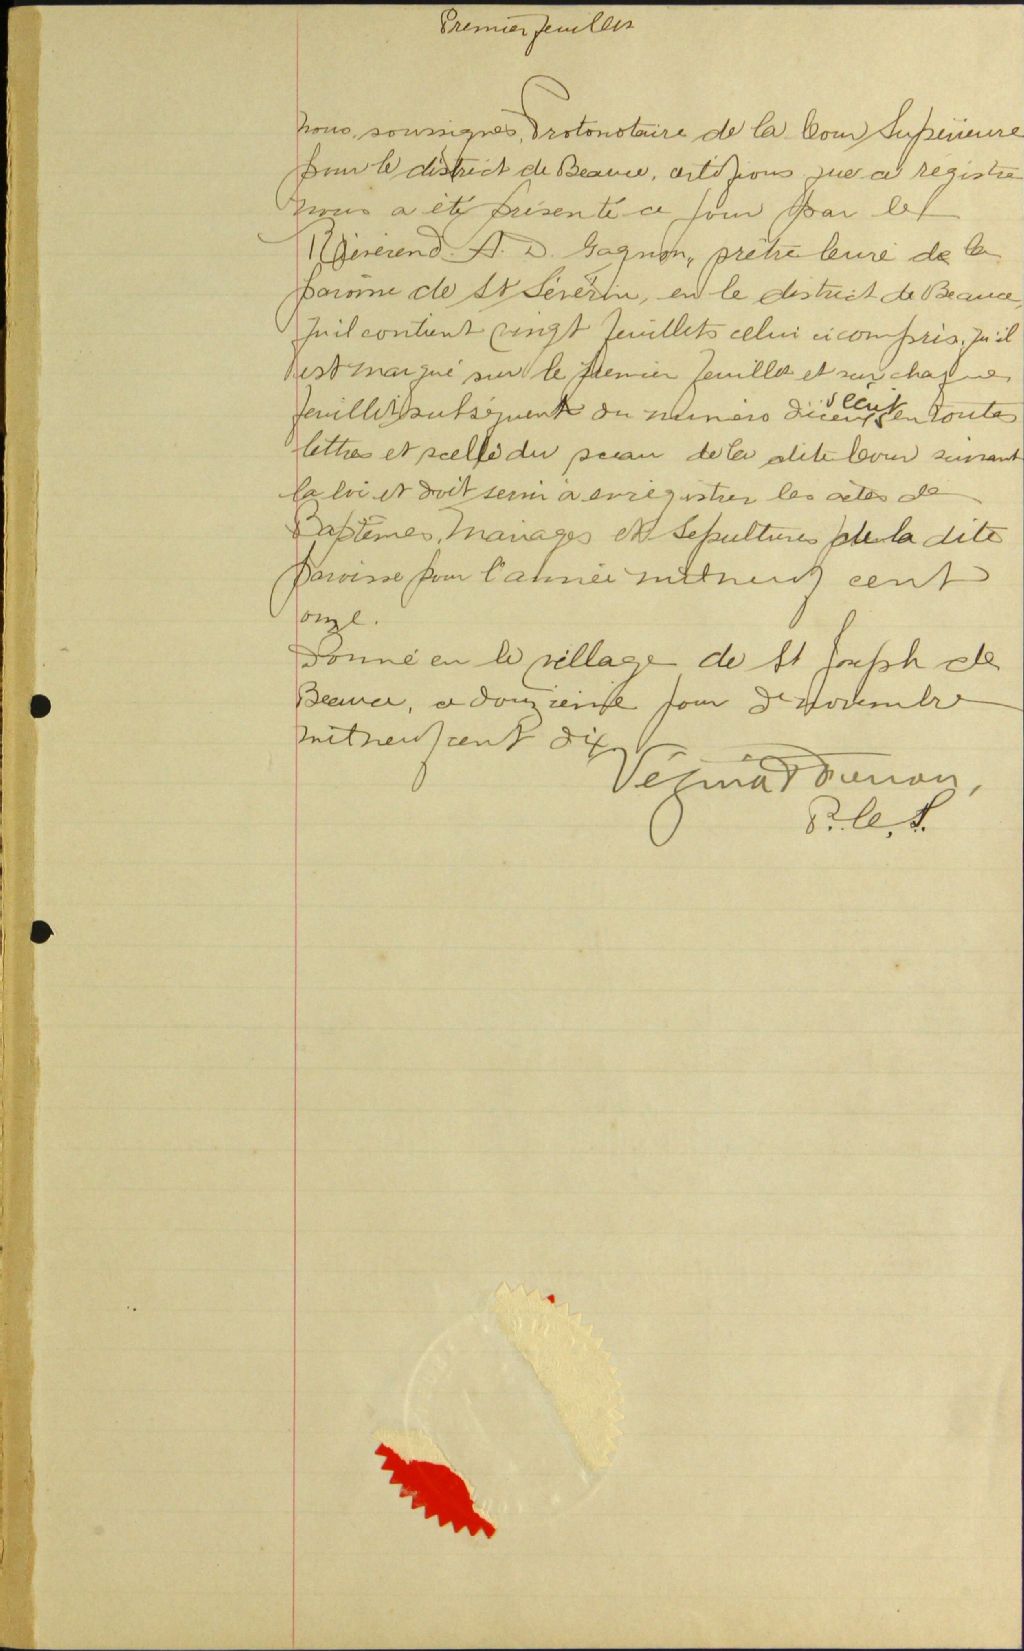 Premier feuillet
Nous, soussignés, Protonotaire de la Cour Supérieure
pour le district de Beauce, certifions que ce régistre
nous a été présenté ce jour par le
Révérend A. D. Gagnon, prêtre Curé de la
paroisse de St Séverin, en le district de Beauce,
qu'il contient vingt feuillets celui ci compris, qu'il
est marqué sur le premier feuillet et sur chaque
feuillet subséquent du numéro d'iceux écrit en toutes
lettres et scellé du sceau de la dite Cour suivant
la loi et doit servir à enrégistrer les actes de
Baptêmes, Mariages et Sépultures de la dite
paroisse pour l'année mil neuf cent
onze.
Donné en le village de St Joseph de
Beauce, ce douzième jour de novembre
mil neuf cent dix
Vézina &
P. C. S.